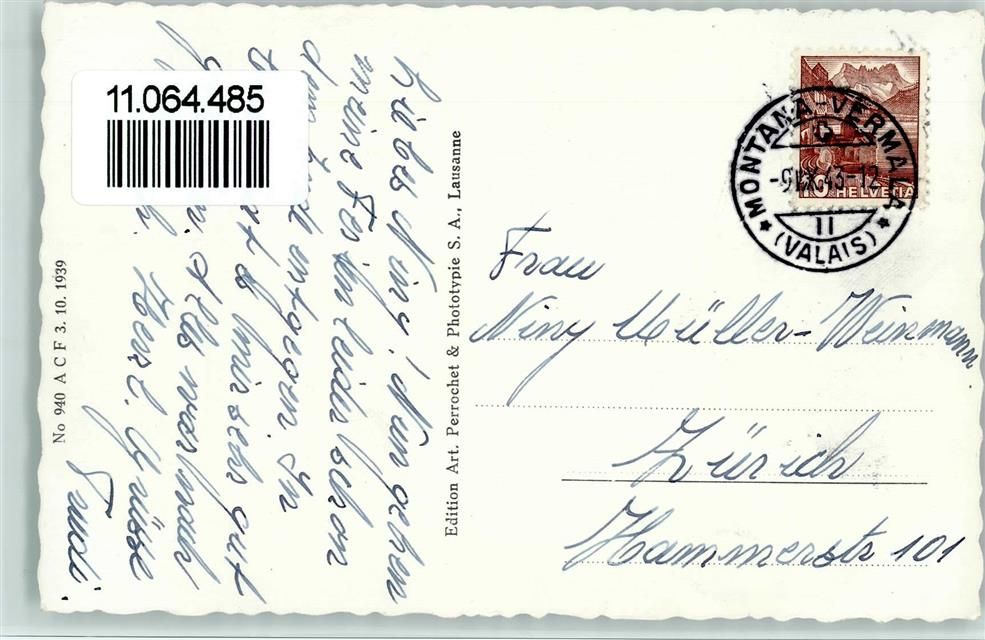 11.064.485
No 940 A C F 3. 10. 1939
Liebes Niny! Nun gehen
meine Ferien leider schon
dem Ende entgegen. In
gefällt es mir sehr gut
Alles was
Herzl. Grüsse
Trudi.
Edition Art. Perrochet & Phototypie S. A., Lausanne
MONTANA-VERMALA
-9.IX.43-12
II
(VALAIS)
10 HELVETIA
Frau
Niny Müller-Weinmann
Zürich
Hammerstr 101